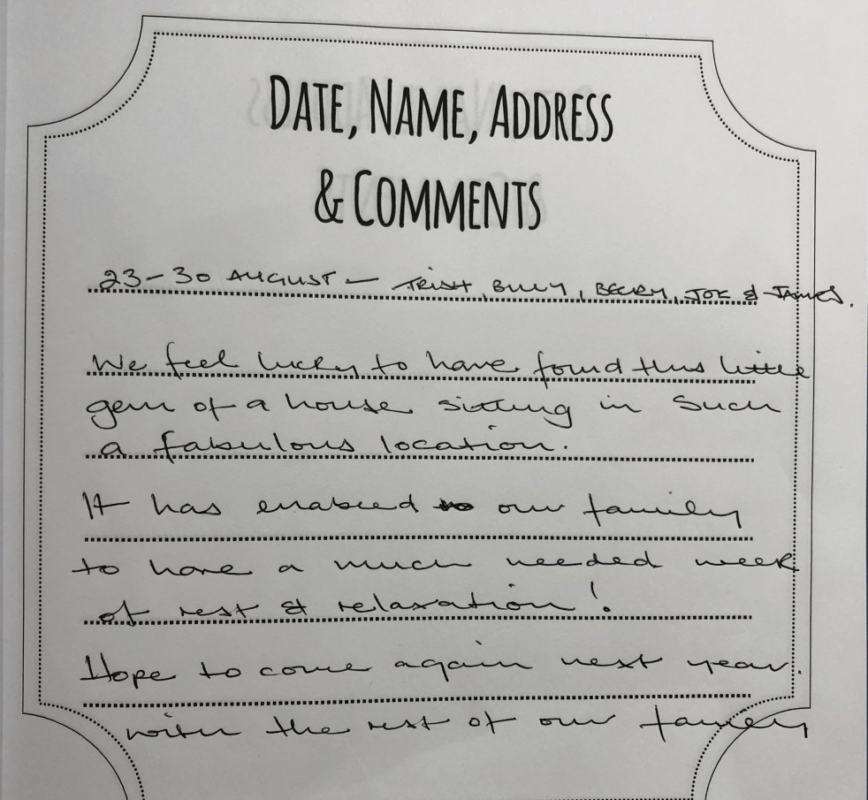 DATE, NAME, ADDRESS
& COMMENTS
23-30 AUGUST - TRISH, BILLY, BECKY, JOE & JAMES.
We feel lucky to have found this little
gem of a house sitting in such
a fabulous location.
It has enabled our family
to have a much needed week
of rest & relaxation!
Hope to come again next year.
with the rest of our family